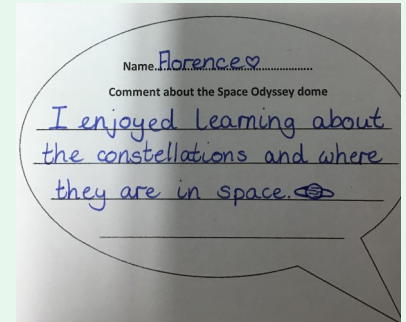 Name. Florence♡
Comment about the Space Odyssey dome
I enjoyed learning about
the constellations and where
they are in space.